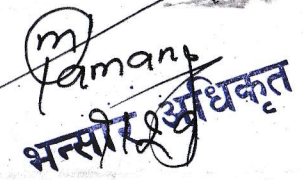 m
Tamang
भन्सार अधिकृत